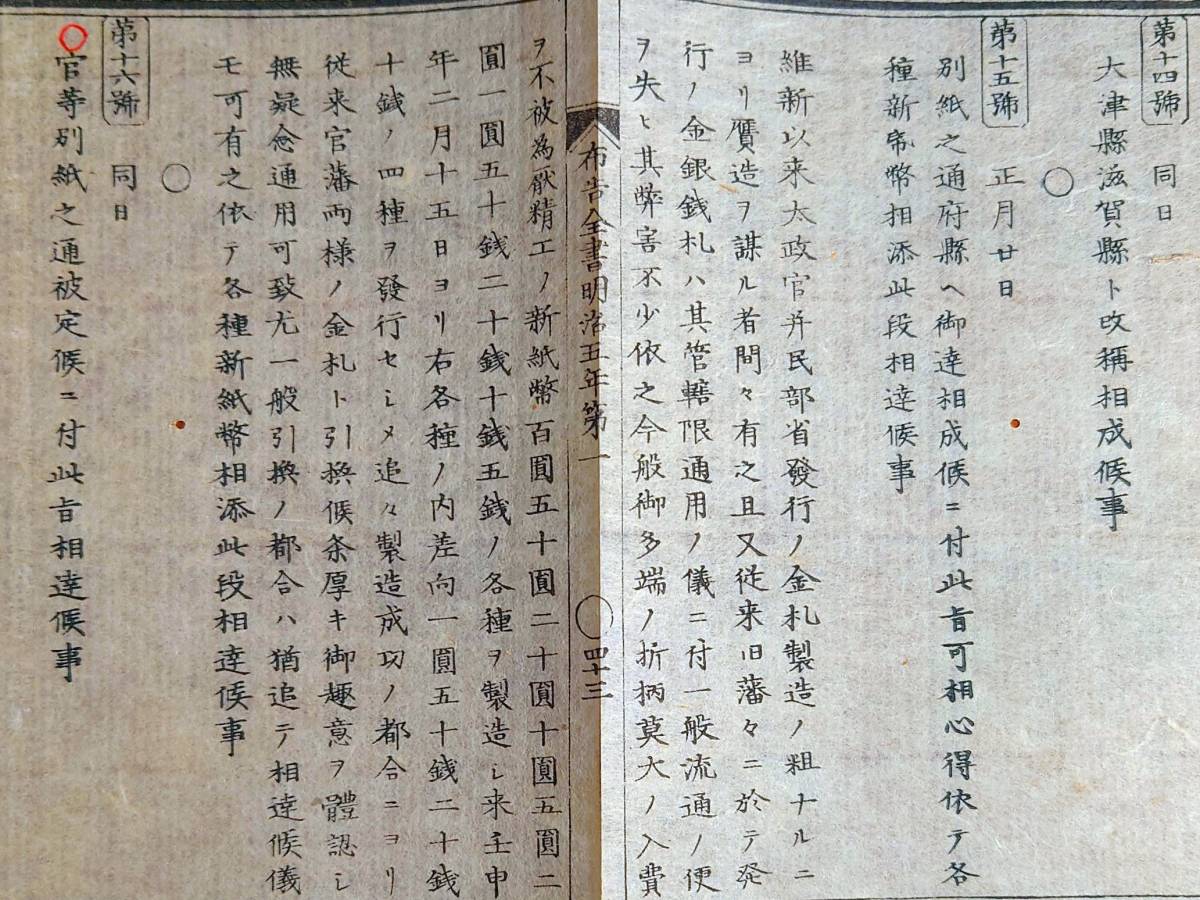 第十四號 同日
大津縣滋賀縣ト改稱相成候事
○
第十五號 正月廿日
別紙之通府縣ヘ御達相成候ニ付此旨可相心得依テ各
種新帋幣相添此段相達候事
維新以来太政官并民部省發行ノ金札製造ノ粗ナルニ
ヨリ贋造ヲ謀ル者間々有之且又従来旧藩々ニ於テ発
行ノ金銀銭札ハ其管轄限通用ノ儀ニ付一般流通ノ便
ヲ失ヒ其弊害不少依之今般御多端ノ折柄莫大ノ入費
布告全書明治五年第一 ○ 四十三
ヲ不被為厭精工ノ新紙幣百圓五十圓二十圓十圓五圓二
圓一圓五十銭二十銭十銭五銭ノ各種ヲ製造シ来壬申
年二月十五日ヨリ右各種ノ内差向一圓五十銭二十銭
十銭ノ四種ヲ發行セシメ追々製造成功ノ都合ニヨリ
従来官藩両様ノ金札ト引換候条厚キ御趣意ヲ體認シ
無疑念通用可致尤一般引換ノ都合ハ猶追テ相達候儀
モ可有之依テ各種新紙幣相添此段相達候事
○
第十六號 同日
○官等別紙之通被定候ニ付此旨相達候事